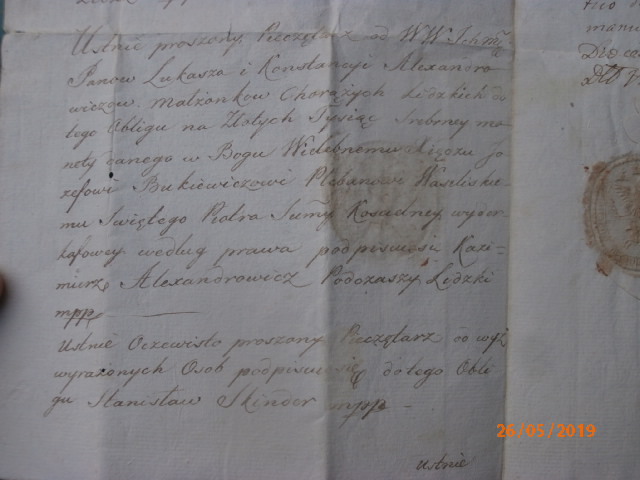 Ustnie proszony Pieczętarz od WW Ichmć
Panow Łukasza i Konstancyi Alexandro
wiczow Małżonkow Chorążych Lidzkich do
tego Obligu na Złotych Tysiąc Srebrney mo
nety danego w Bogu Wielebnemu Xiędzu Jo
zefowi Bukiewiczowi Plebanowi Wasilisku
mu Swiętego Piotra Summy wyder
kafowey według prawa podpisuię się Kazi
mierz Alexandrowicz Podczaszy Lidzki
mpp
Ustnie Oczewisto proszony Pieczętarz od wyż
wyrażonych Osob podpisuię się do tego Obli
gu Stanisław Skinder mpp
ustnie
tico
manu
26/05/2019